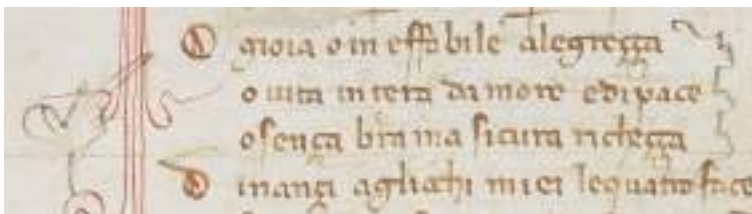 O gioia o ineffabile alegreçça
o uita intera damore edipace
o sença brama sicura richeçça
D inançi agliochi miei lequatro face